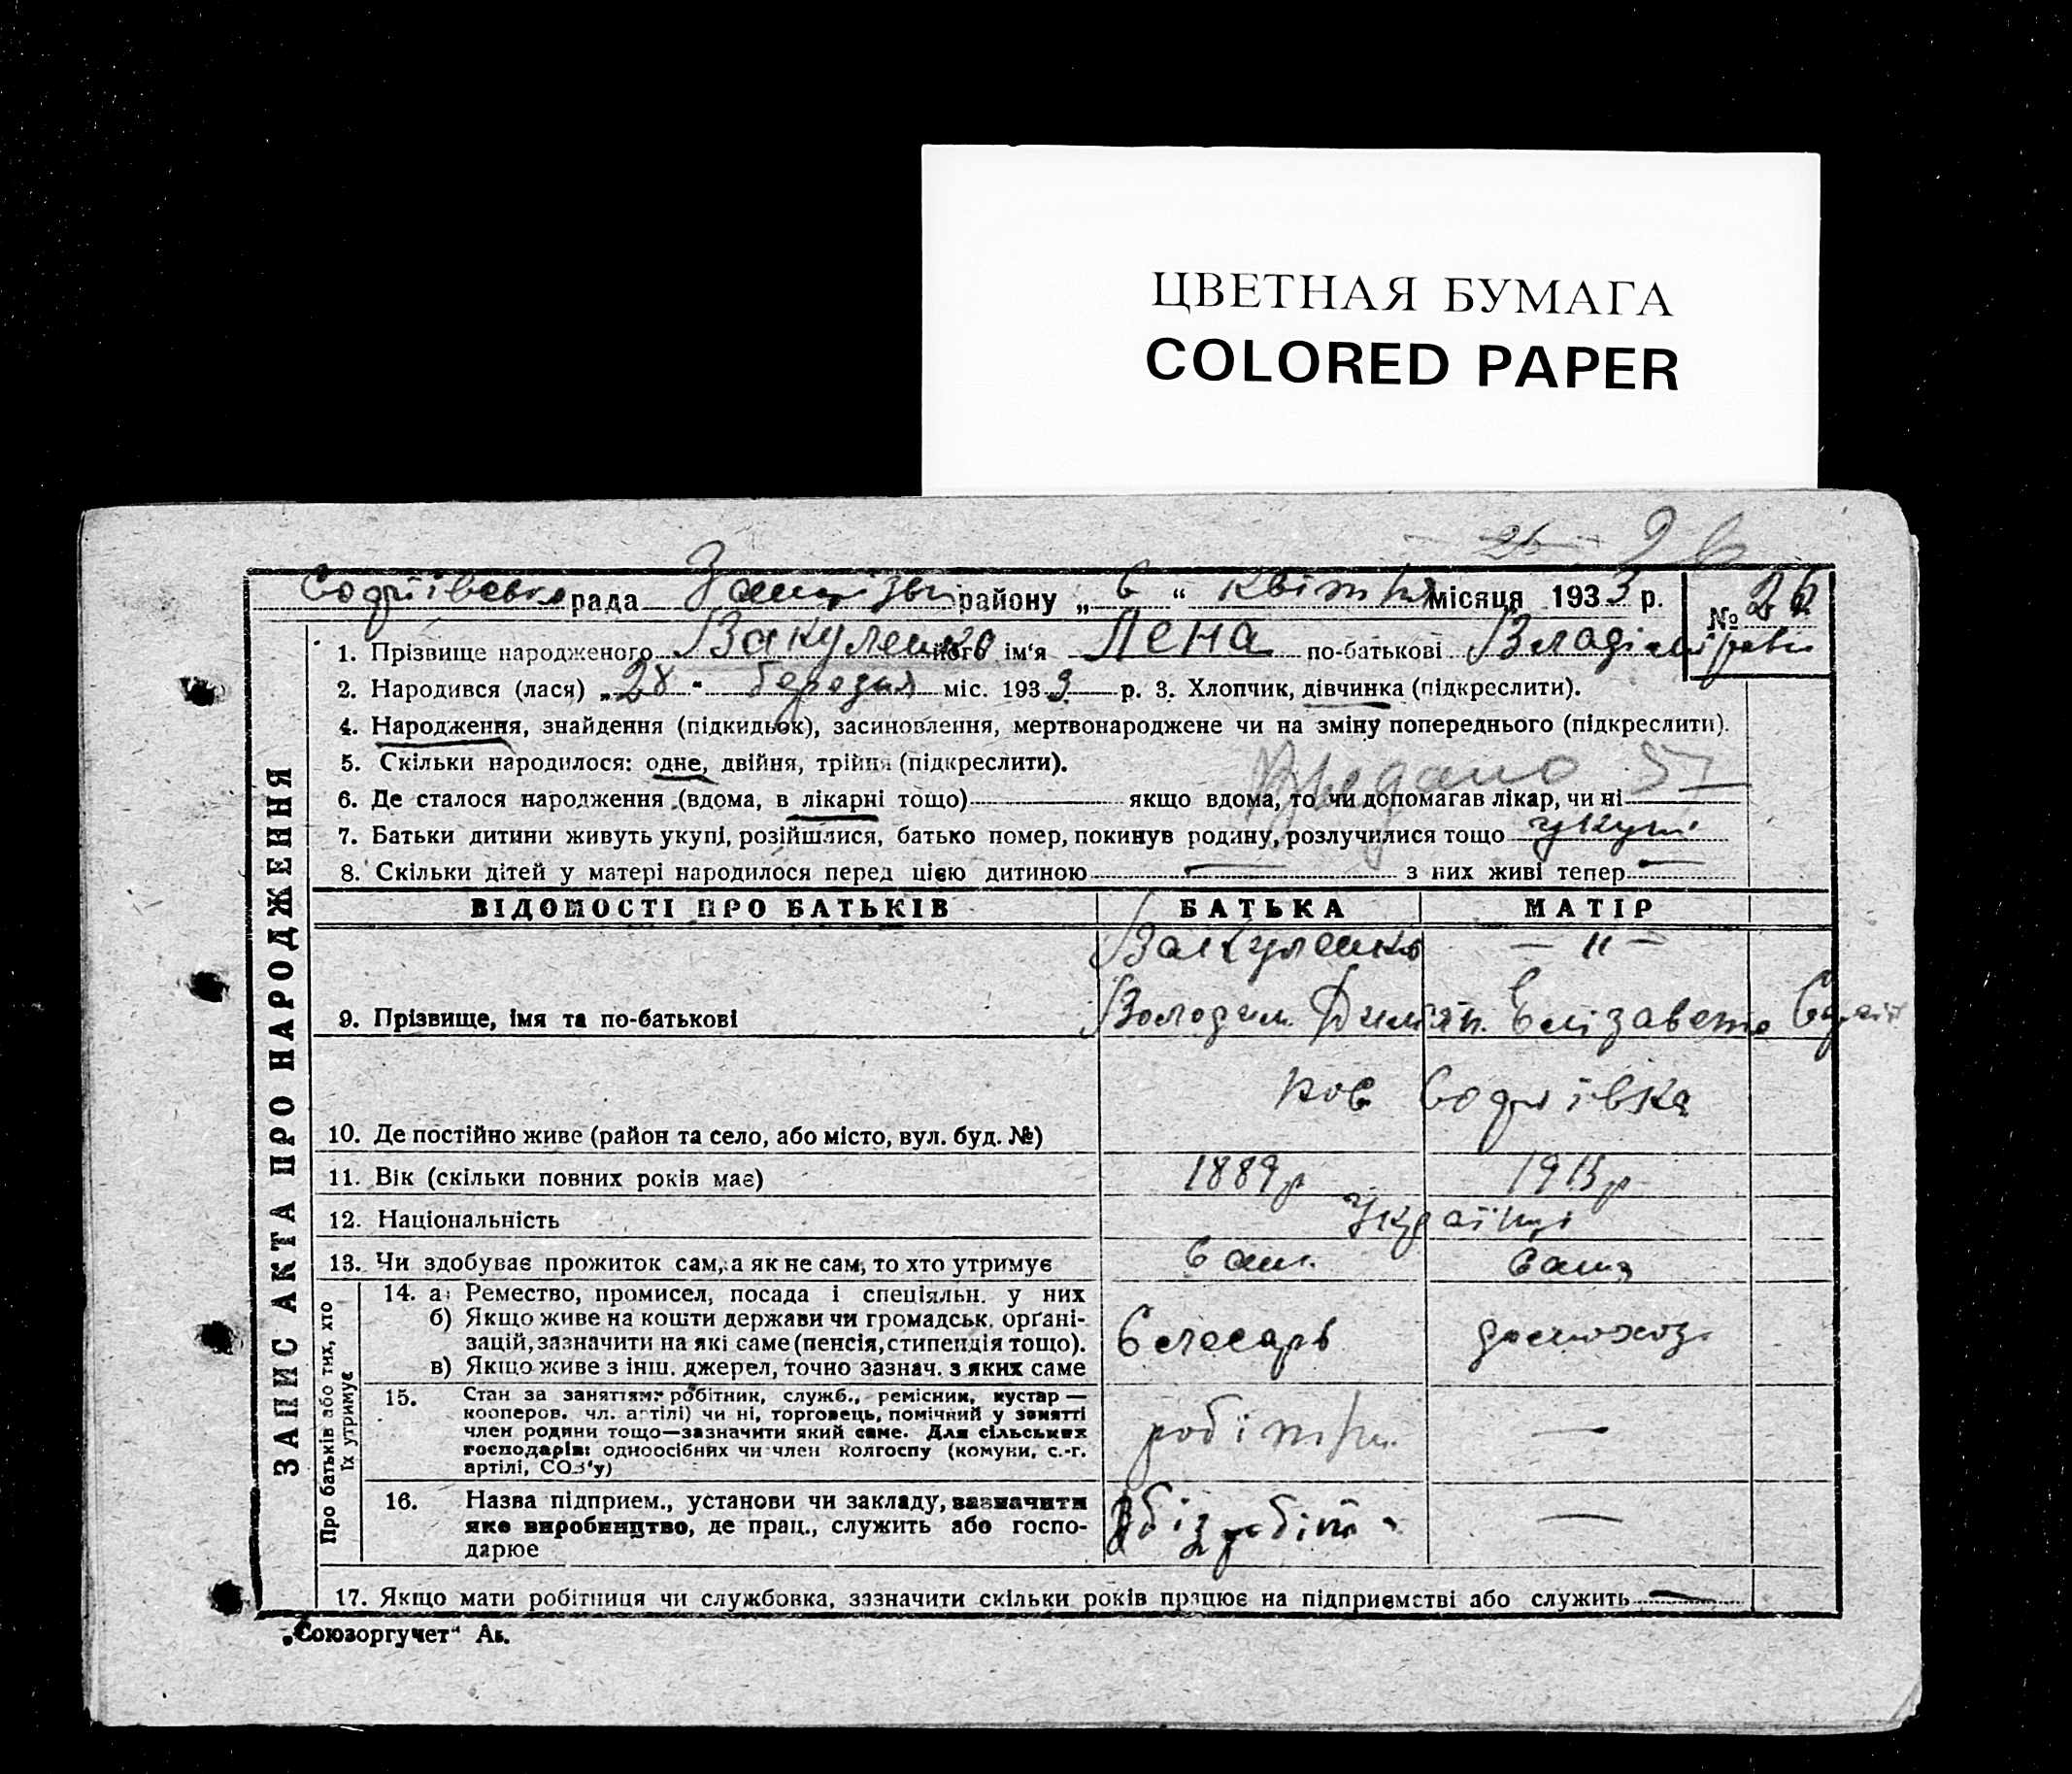 ЦВЕТНАЯ БУМАГА
COLORED PAPER
26
рада района „6“ квітня місяця 1933 р. № 26
1. Прізвище народженого Вакуленко його ім'я Лена по-батькові
2. Народився (лася) „28" березня міс. 1933 р. 3. Хлопчик, дівчинка (підкреслити).
4. Народження, знайдення (підкидьок), засиновлення, мертвонароджене чи на зміну попереднього (підкреслити).
5. Скільки народилося: одне, двійня, трійня (підкреслити).
6. Де сталося народження (вдома, в лікарні тощо) якщо вдома, то чи допомагав лікар, чи ні
7. Батьки дитини живуть укупі, розійшлися, батько помер, покинув родину, розлучилися тощо укупі
8. Скільки дітей у матері народилося перед цією дитиною — з них живі тепер —
ЗАПИС АКТА ПРО НАРОДЖЕННЯ
ВІДОМОСТІ ПРО БАТЬКІВ БАТЬКА МАТІР
Вакуленко — " —
9. Прізвище, імя та по-батькові Володим. Єлізавета
10. Де постійно живе (район та село, або місто, вул. буд. №)
11. Вік (скільки повних років має) 1889р 1915р
12. Національність Українці
13. Чи здобуває прожиток сам, а як не сам, то хто утримує сам. сама
Про батьків або тих, хто їх утримує
14. а) Ремество, промисел, посада і спеціяльн. у них
б) Якщо живе на кошти держави чи громадськ. орґані-
зацій, зазначити на які саме (пенсія, стипендія тощо).
в) Якщо живе з інш. джерел, точно зазнач. з яких саме
Слесарь домохоз.
15. Стан за заняттям: робітник, служб., ремісник, кустар —
кооперов. чл. артілі) чи ні, торговець, помічний у занятті
член родини тощо—зазначити який саме. Для сільських
господарів: одноосібних чи член колгоспу (комуни, с.-г.
артілі, СОЗ'у)
робітн. —
16. Назва підприєм., установи чи закладу, зазначити
яке виробництво, де прац., служить або госпо-
дарює
—
17. Якщо мати робітниця чи службовка, зазначити скільки років працює на підприємстві або служить —
„Союзоргучет“ Ак.